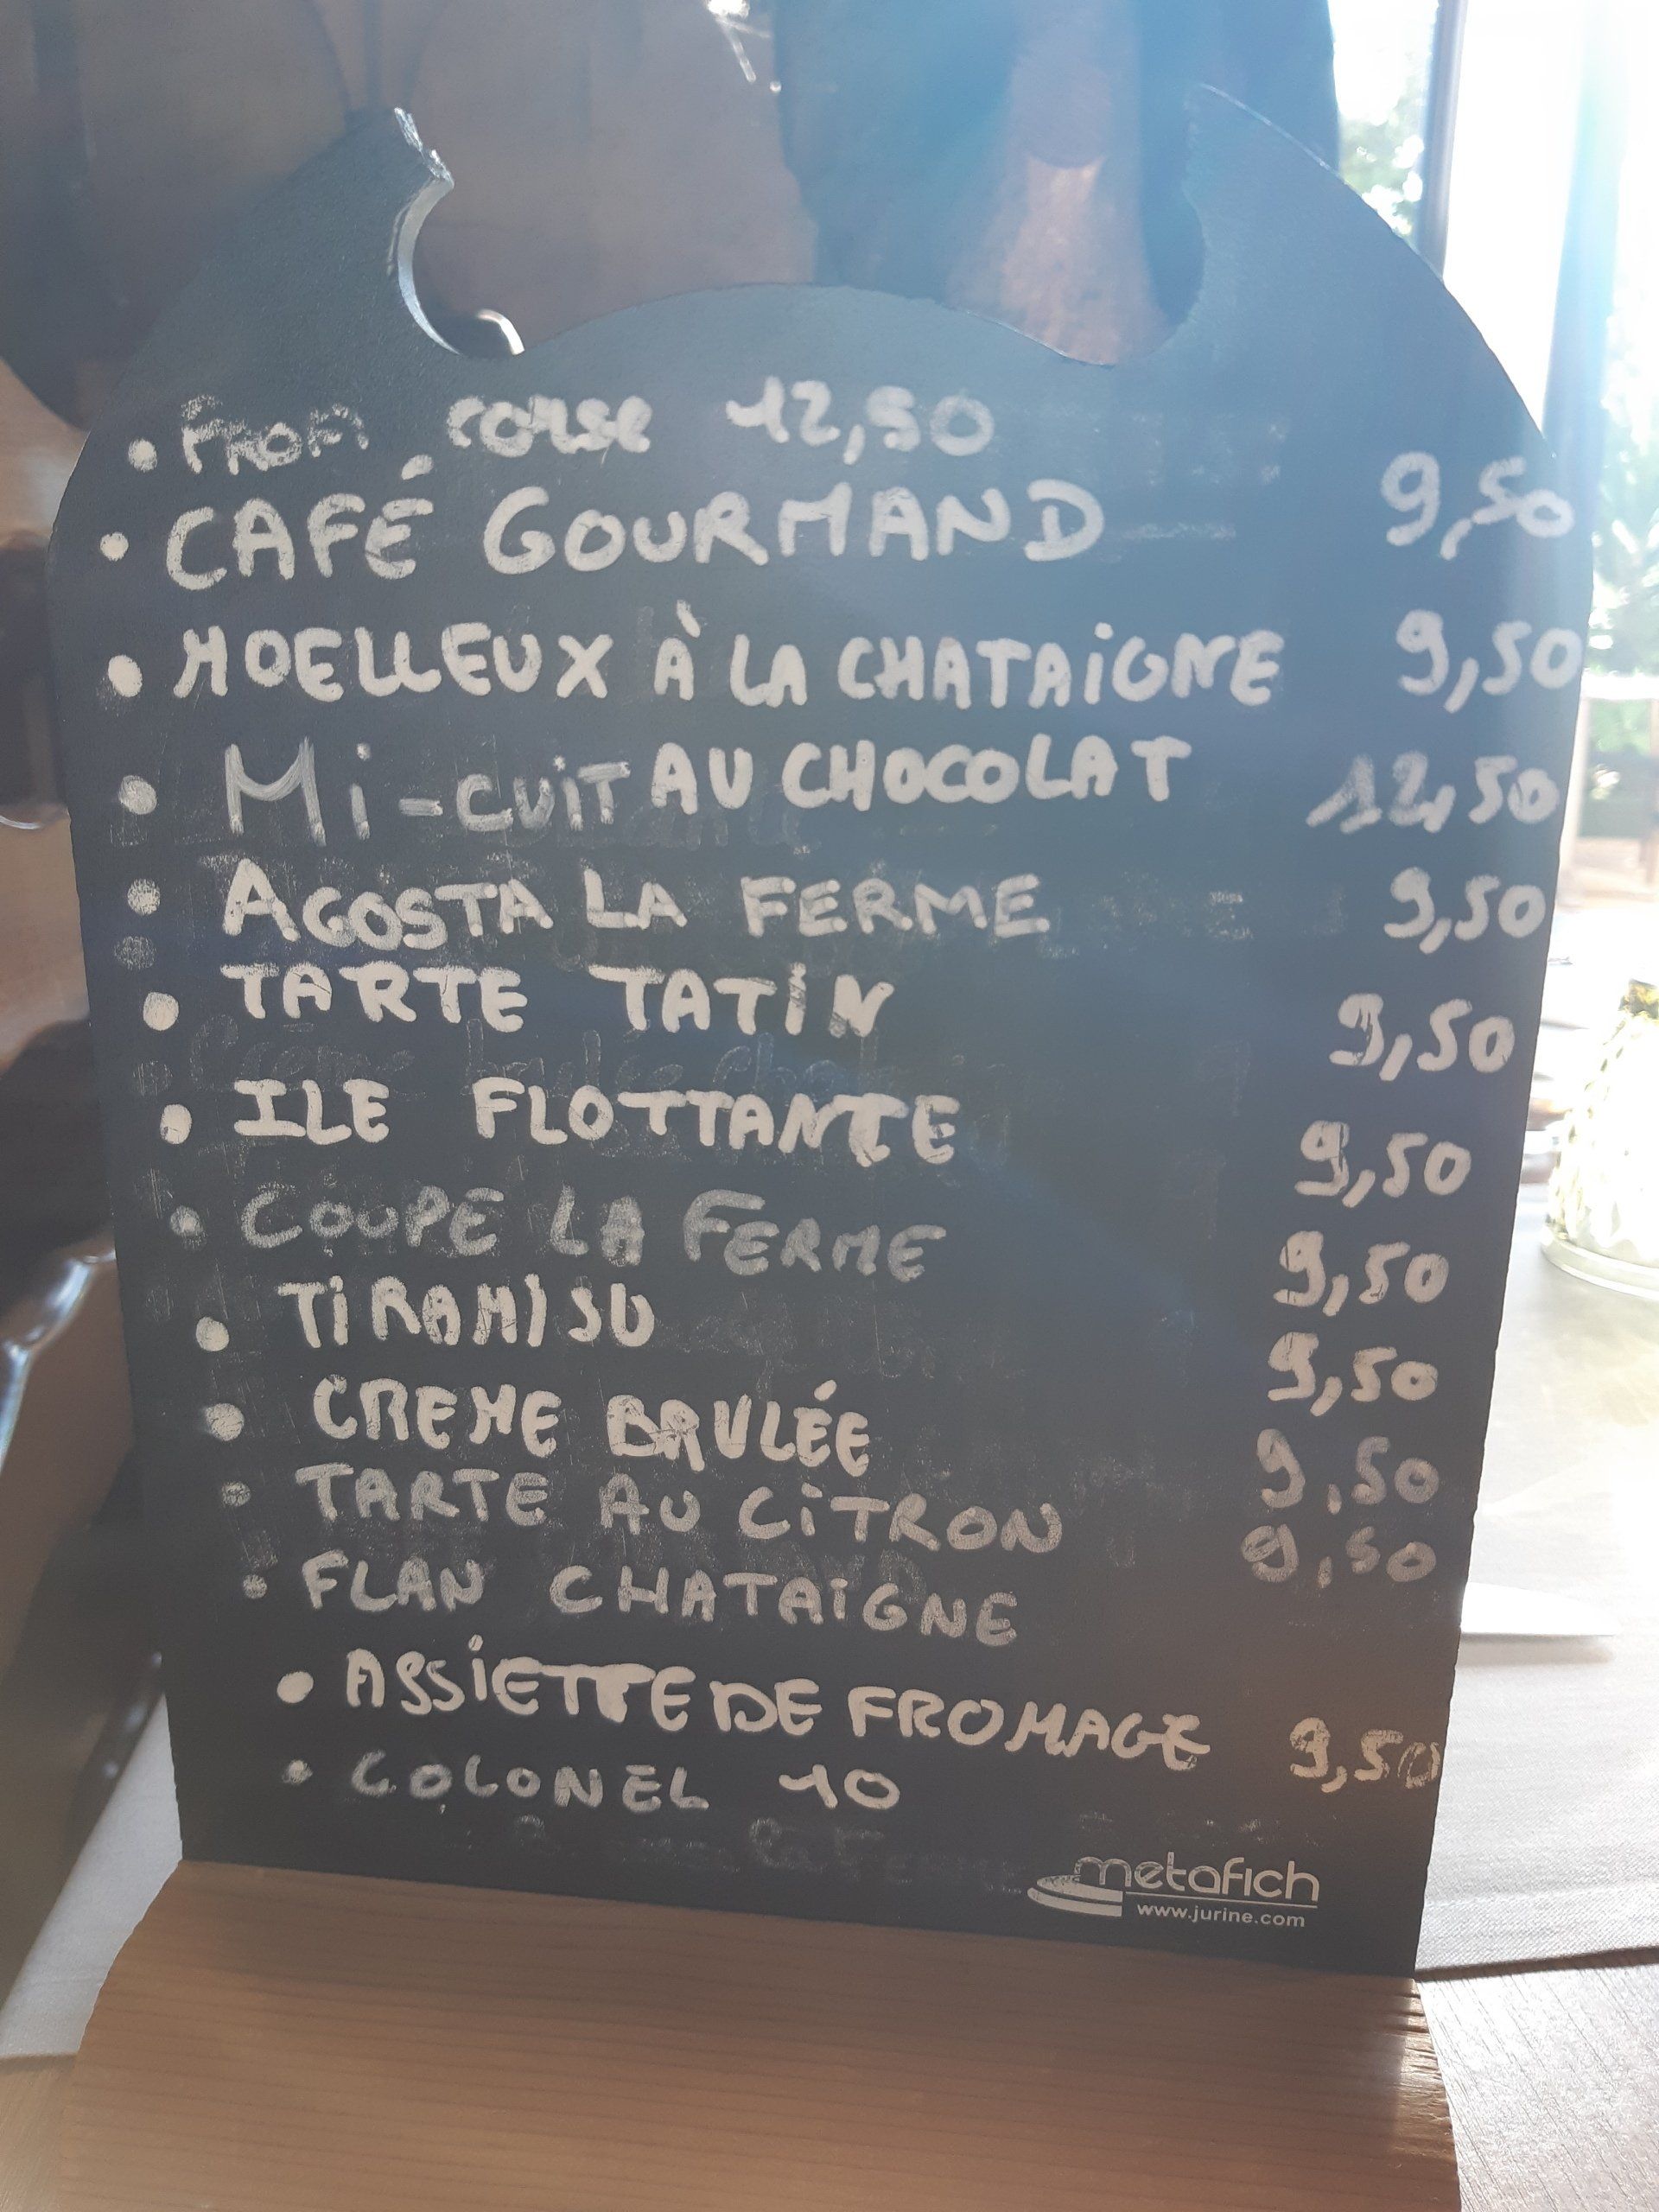 • PROFI CORSE 12,50
• CAFÉ GOURMAND 9,50
• MOELLEUX À LA CHATAIGNE 9,50
• Mi-CUIT AU CHOCOLAT 12,50
• AGOSTA LA FERME 9,50
• TARTE TATIN 9,50
• ILE FLOTTANTE 9,50
• COUPE LA FERME 9,50
• TIRAMISU 9,50
• CREME BRULÉE 9,50
• TARTE AU CITRON 9,50
• FLAN CHATAIGNE
• ASSIETTE DE FROMAGE 9,50
• COLONEL 10
metafich
www.jurine.com